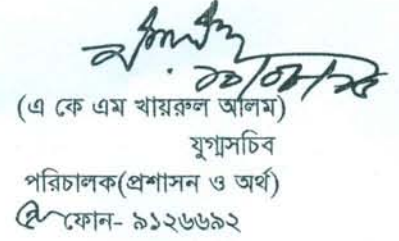 (এ কে এম খায়রুল আলম)
যুগ্মসচিব
পরিচালক(প্রশাসন ও অর্থ)
ফোন- ৯১২৬৬৯২